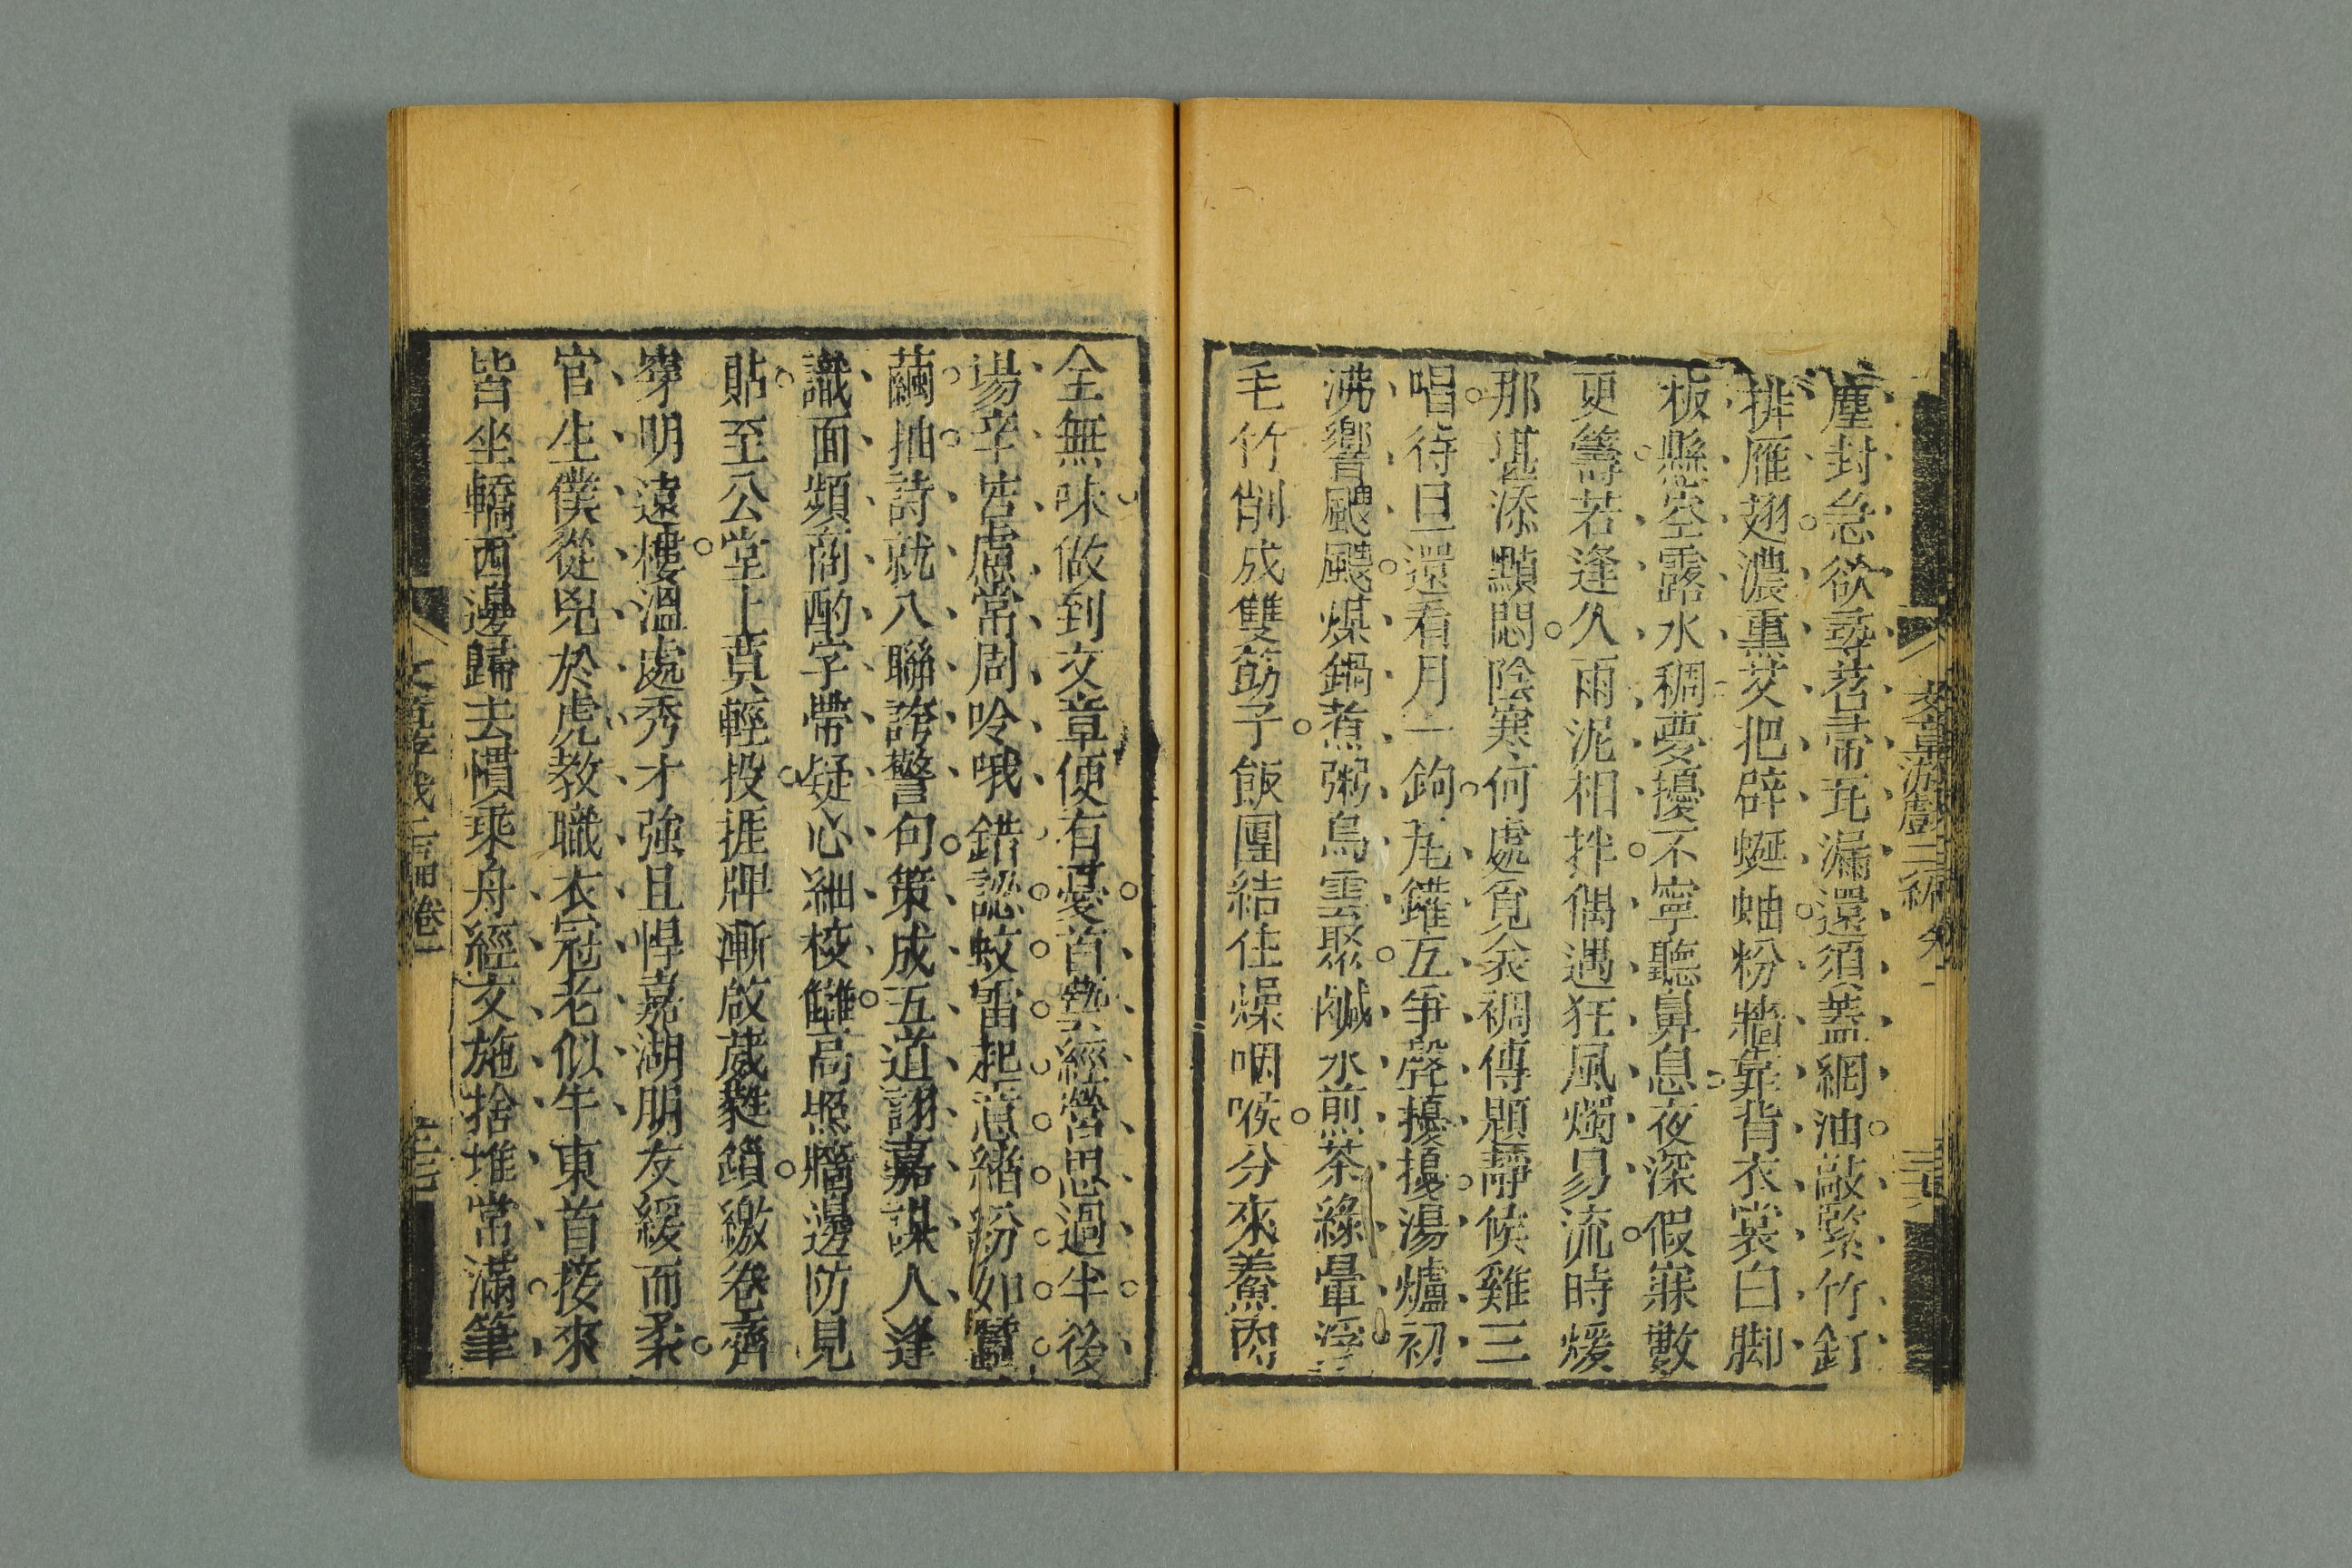 塵封急欲尋苕帚瓦漏還須蓋網油敲緊竹釘
排雁翅濃熏艾把辟蜒蚰粉牆靠背衣裳白脚
板懸空露水稠夢擾不寧聽鼻息夜深假寐數
更籌若逢久雨泥相拌偶遇狂風燭易流時煖
那堪添顯悶陰寒何處覓衾裯傳題靜候雞三
唱待旦還看月一鉤尾鑵互爭聲擾擾湯爐初
沸響颼颼煤鍋煮粥烏雲聚鹹水煎茶綠暈浮
毛竹削成雙筯子飯團結住燥咽喉分來養肉
全無味做到文章便有憂首藝經營思過半後
場辛苦慮常周吟哦錯認蚊雷起意緒紛如蠶
繭抽詩就八聯誇警句策成五道詡嘉謀人逢
識面頻商酌字帶疑心細校讎高照牆邊防見
貼至公堂上莫輕投捱牌漸啟葳蕤鎖繳卷齊
穿明遠樓溫處秀才強且悍嘉湖朋友緩而柔
官生僕從兇於虎教職衣冠老似牛東首接來
皆坐轎西邊歸去慣乘舟經文施捨堆常滿筆
文章游戲二編 卷一
三六
文章游戲二編 卷一
三七